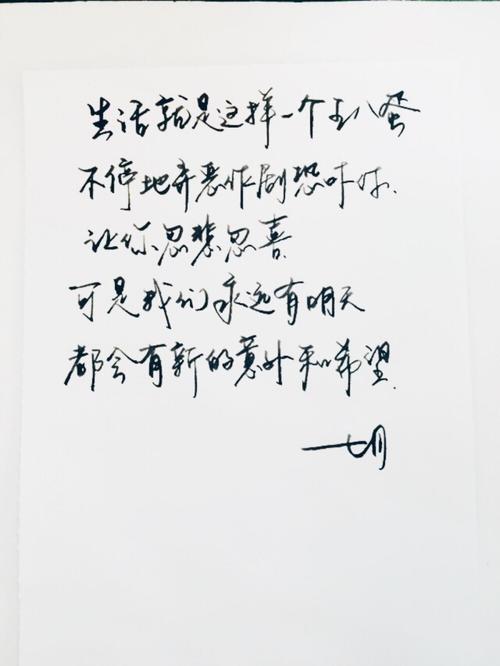 生活就是这样一个王八蛋
不停地弄恶作剧恐吓你.
让你忽悲忽喜
可是我们永远有明天
都会有新的意外和希望.
——七月